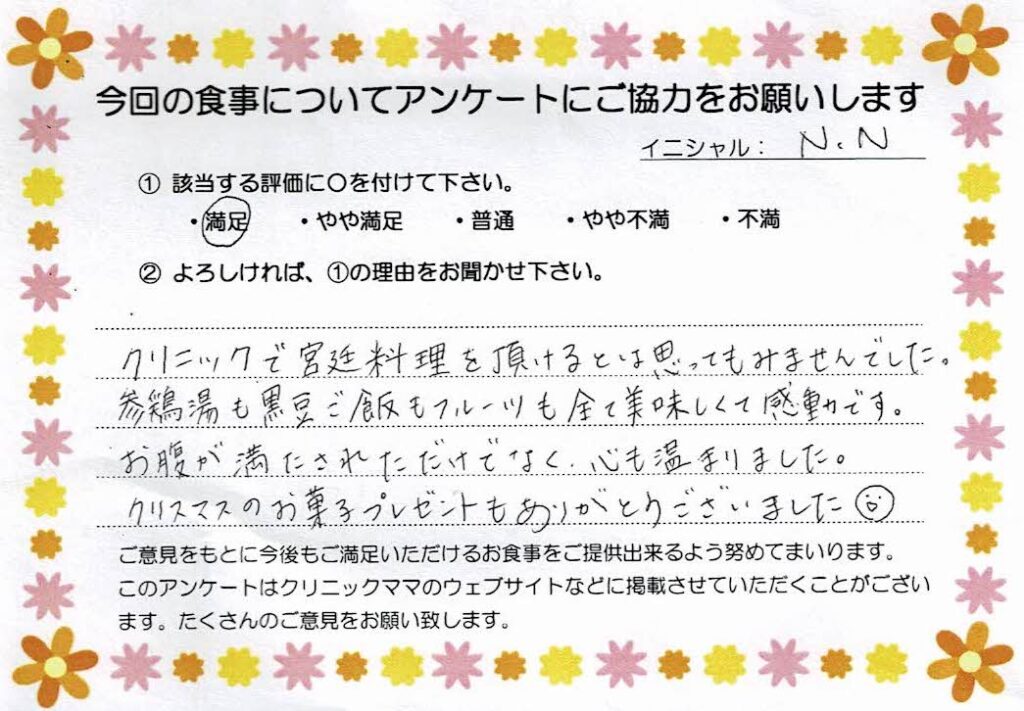 今回の食事についてアンケートにご協力をお願いします
イニシャル： N.N
① 該当する評価に〇を付けて下さい。
・満足 ・やや満足 ・普通 ・やや不満 ・不満
② よろしければ、①の理由をお聞かせ下さい。
クリニックで宮廷料理を頂けるとは思ってもみませんでした。
参鶏湯も黒豆ご飯もフルーツも全て美味しくて感動です。
お腹が満たされただけでなく、心も温まりました。
クリスマスのお菓子プレゼントもありがとうございました
ご意見をもとに今後もご満足いただけるお食事をご提供出来るよう努めてまいります。
このアンケートはクリニックママのウェブサイトなどに掲載させていただくことがござい
ます。たくさんのご意見をお願い致します。